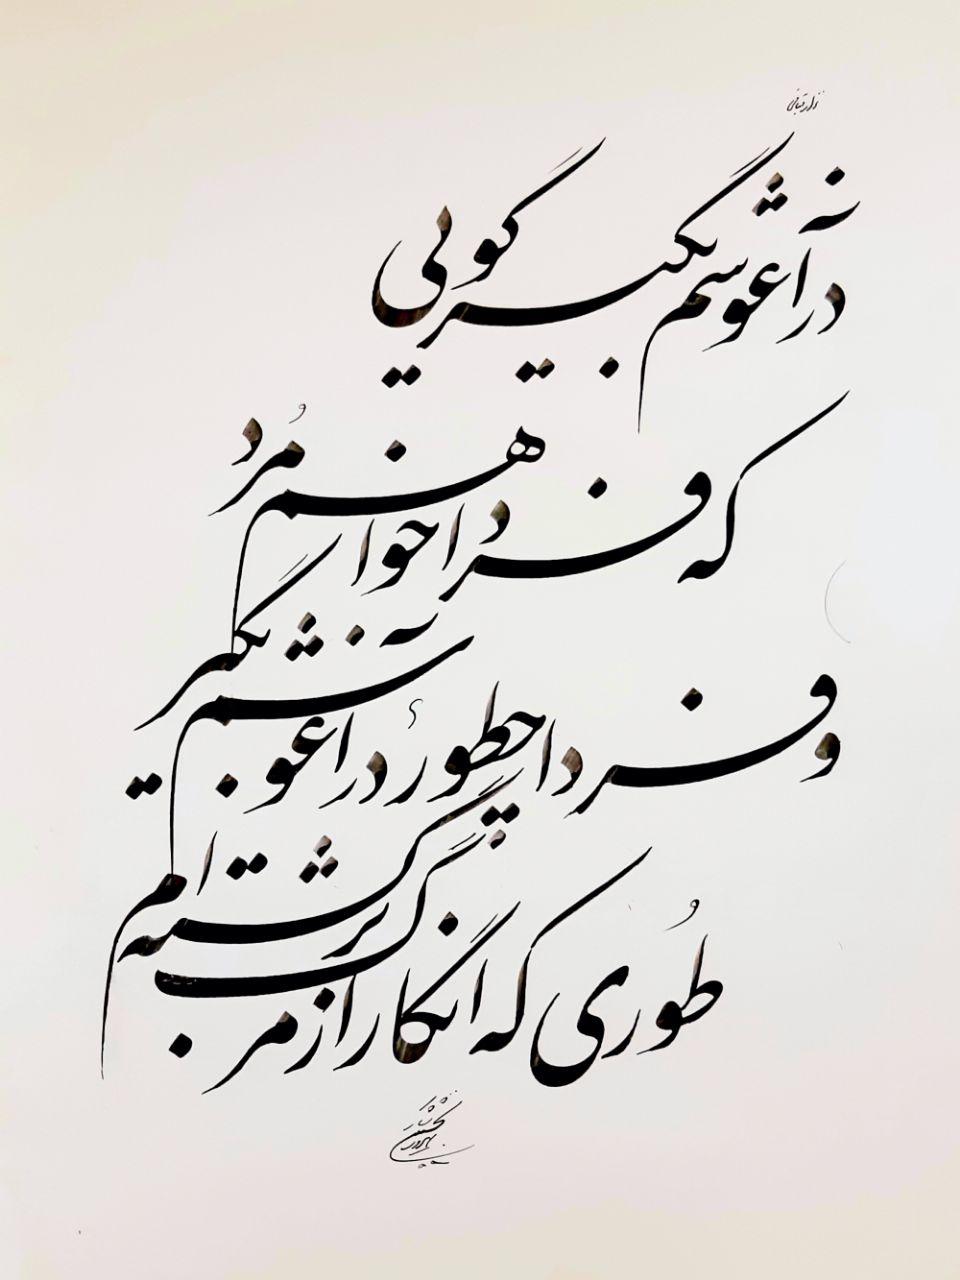 نزار قبانی
در آغوشم بگیر گویی
که فردا خواهم مُرد
و فردا چطور؟ در آغوشم بگیر
طُوری که انگار از مرگ برگشته ام